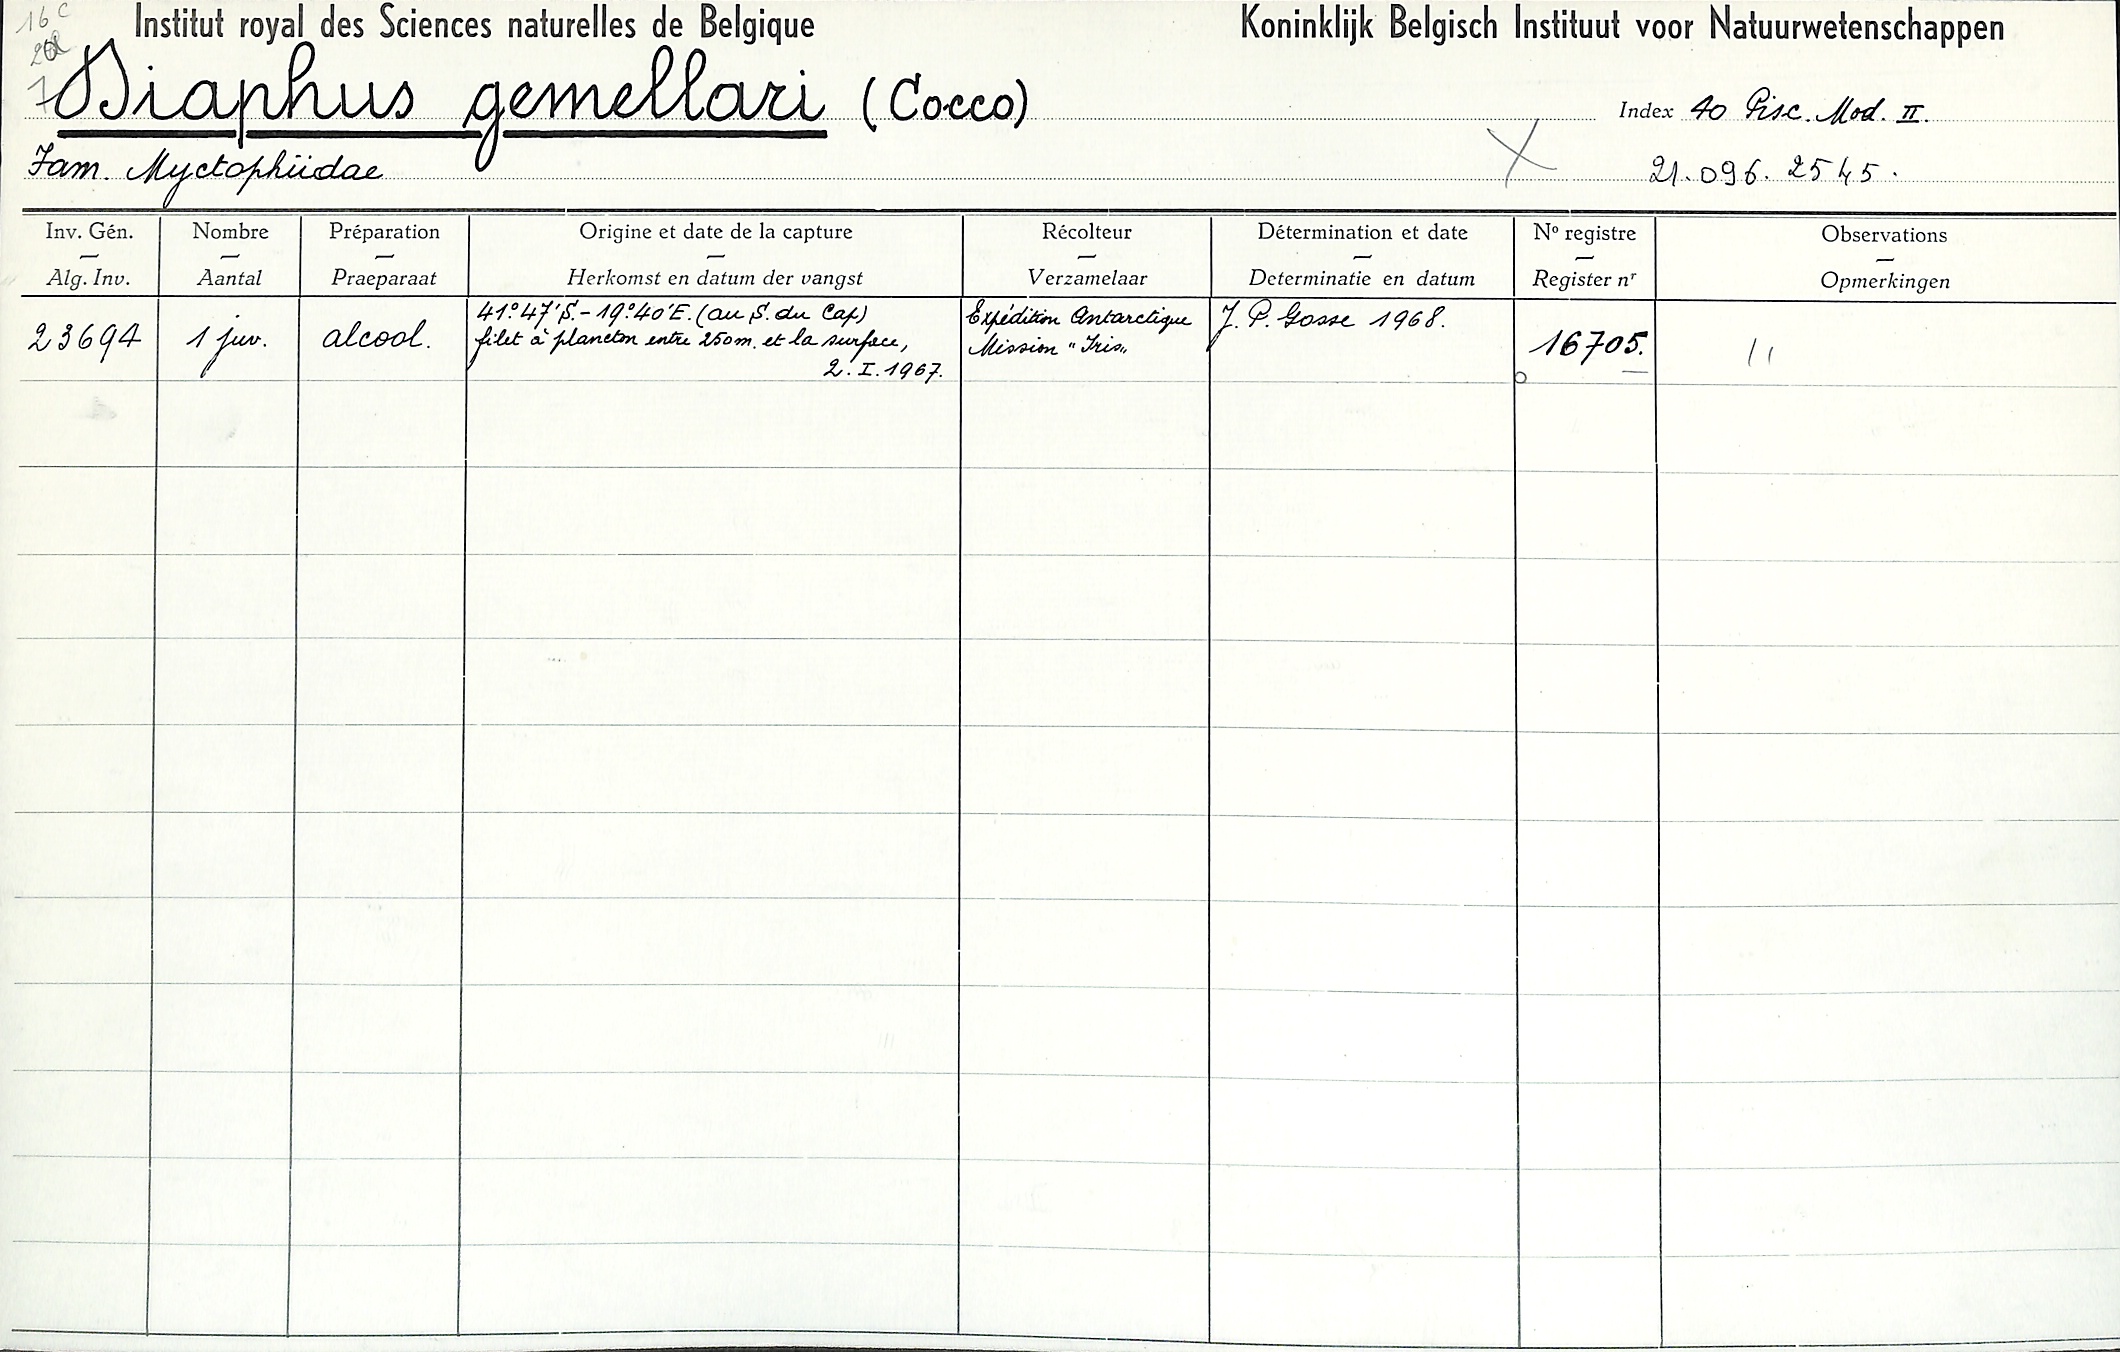 16 C
Institut royal des Sciences naturelles de Belgique
Koninklijk Belgisch Instituut voor Natuurwetenschappen
Diaphus gemellari (Cocco)
Index 40 Pisc. Mod. II.
Fam. Myctophiidae
X 21.096.2545.
Inv. Gén. Nombre Préparation Origine et date de la capture Récolteur Détermination et date No registre Observations
Alg. Inv. Aantal Praeparaat Herkomst en datum der vangst Verzamelaar Determinatie en datum Register nr Opmerkingen
23694 1 juv. alcool. 41°47'S.-19°40'E. (au S. du Cap) Expédition Antarctique J. P. Gosse 1968. 16705.
filet à plancton entre 250m. et la surface, Mission "Iris"
2.I.1967.